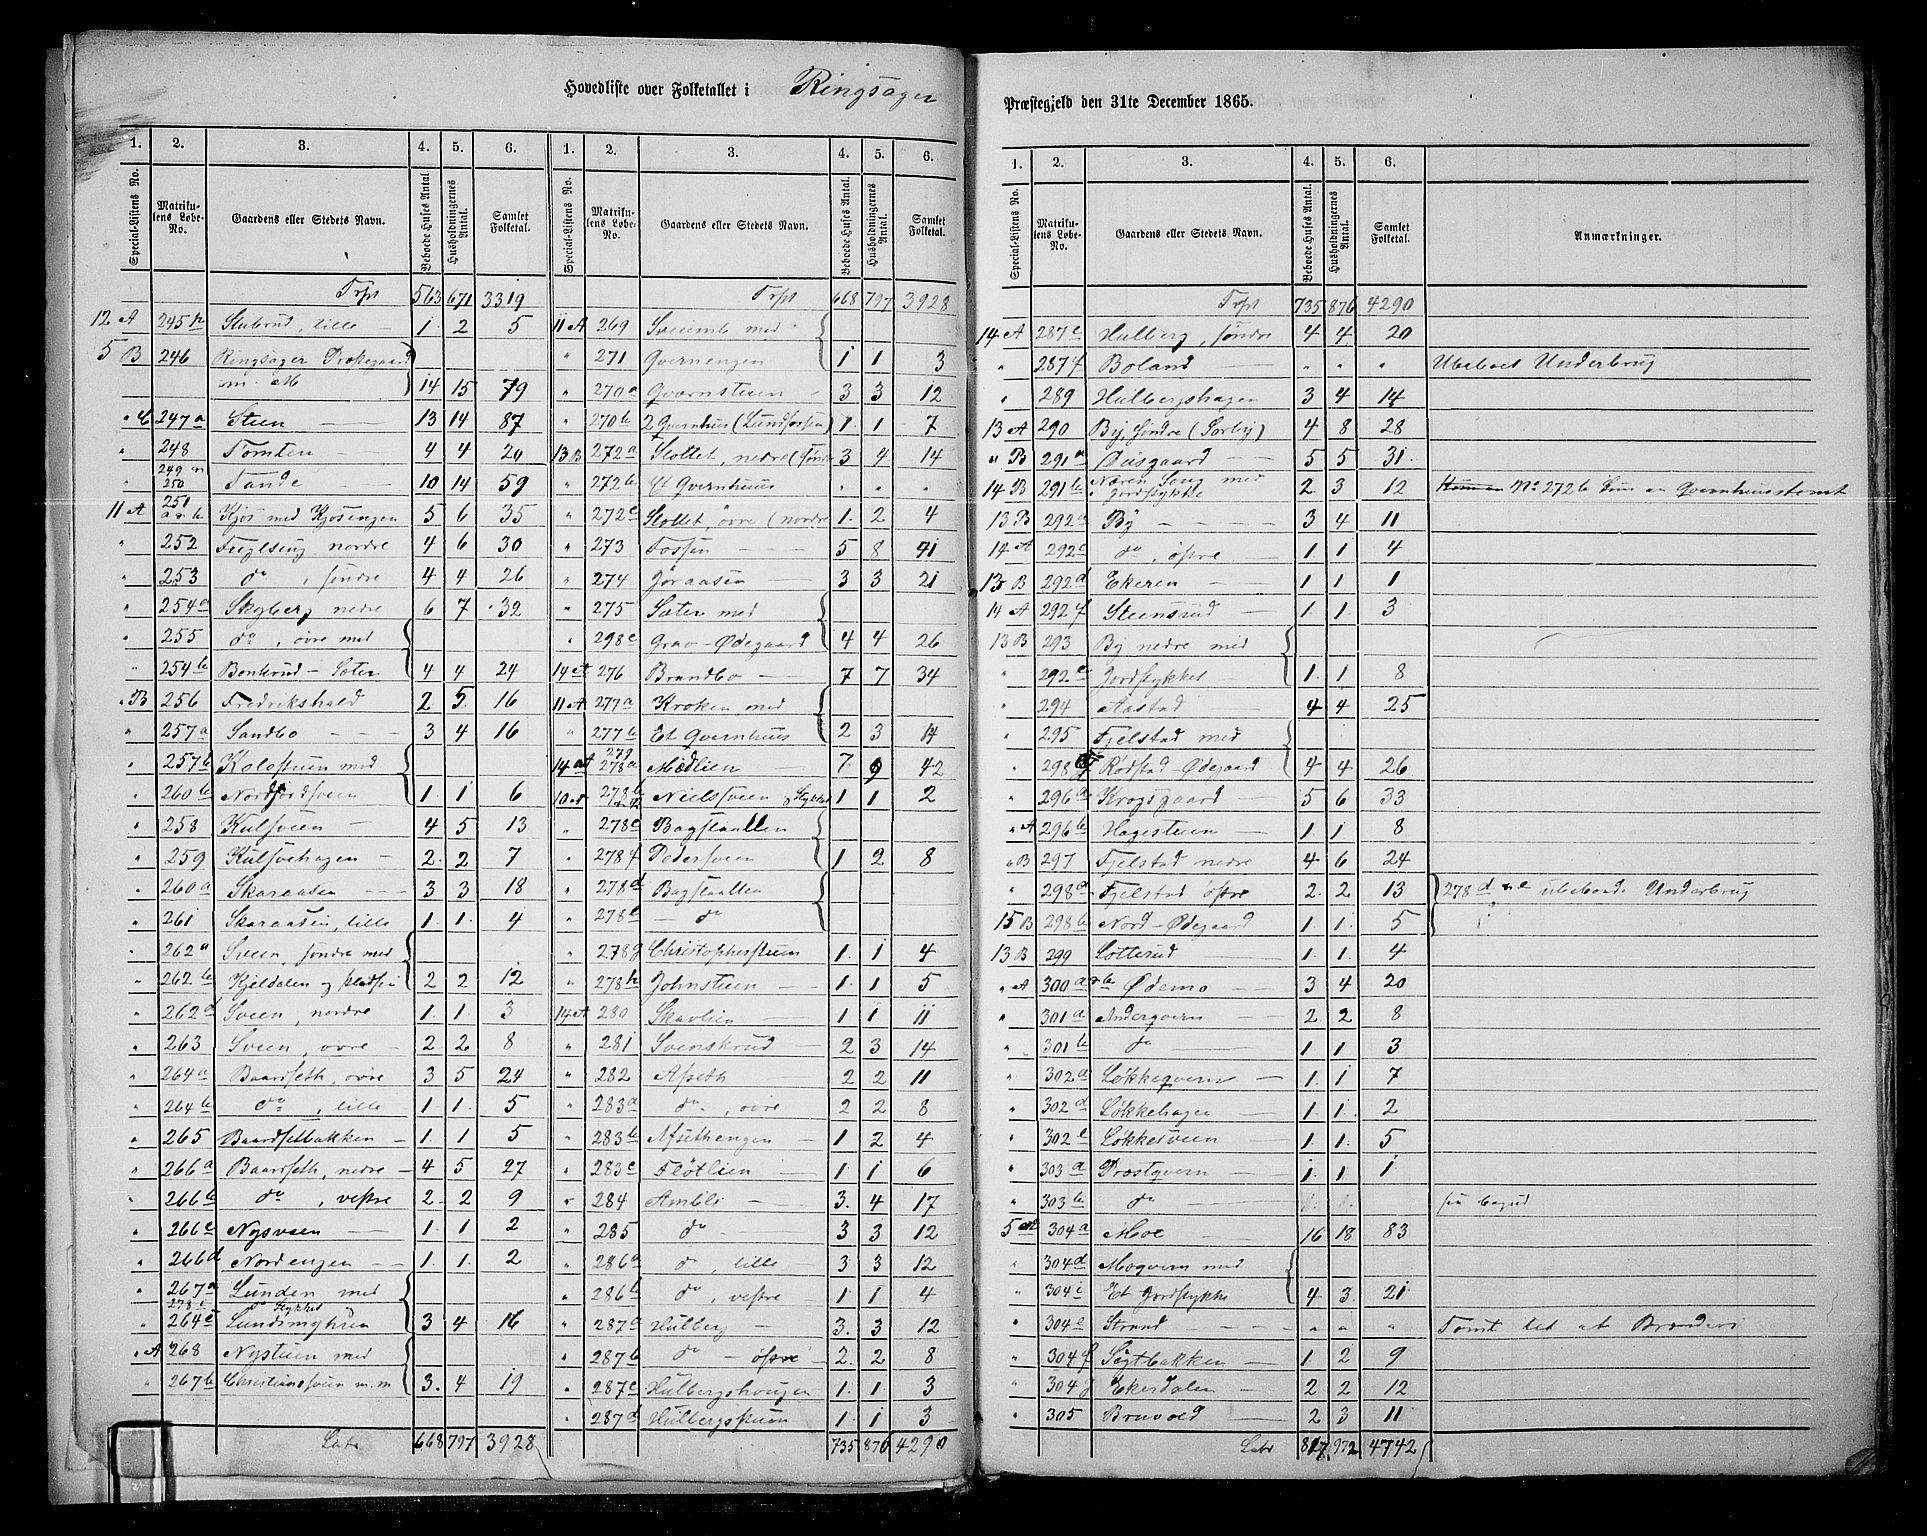 Hovedliste over Folketallet i Ringsager
Præstegjeld den 31te December 1865.
1. 2. 3. 4. 5. 6. 1. 2. 3. 4. 5. 6.
Special-Listens No. Matrikulens Løbe-No. Gaardens eller Stedets Navn. Beboede Huses Antal. Husholdningernes Antal. Samlet Folketal. Special-Listens No. Matrikulens Løbe-No. Gaardens eller Stedets Navn. Beboede Huses Antal. Husholdningernes Antal. Samlet Folketal.
Trpt 563 671 3319
12 A 245 h Stubrud, lille 1 2 5
5 B 246 Ringsager Præstegaard
m. M 14 15 79
" C 247 a Steen 13 14 87
" 248 Tomten 4 4 20
" 249 250 Tande 10 14 59
11 A 251 a & b Kjos med Kjosengen 5 6 35
" 252 Fuglseng nordre 4 6 30
" 253 do , søndre 4 4 26
" 254 a Skyberg nedre 6 7 32
" 255 do , övre med
" 254 b Bonkrud-Sæter 4 4 24
" B 256 Fredrikshald 2 5 16
" 257 a Sandbo 3 4 16
" 257 b Kolostuen med
" 260 b Nordjordsveen 1 1 6
" 258 Kulsveen 4 5 13
" 259 Kulsvehagen 2 2 7
" 260 a Skaraasen 3 3 18
" 261 Skaraasen, lille 1 1 4
" 262 a Sveen, søndre med
" 262 b Kjeldalen og 2 2 12
" 262 d Sveen, nordre 1 1 3
" 263 Sveen, ovre 2 2 8
" 264 a Baardseth, ovre 3 5 24
" 264 b do , lille 1 1 5
" 265 Baardsetbakken 1 1 5
" 266 a Baardseth, nedre 4 5 27
" 266 b do , vestre 2 2 9
" 266 c Nysveen 1 1 2
" 266 d Nordengen 1 1 2
" 267 a Lunden med
278 i do Stykket
" 264 c Lundsmyhren 3 4 16
" A 268 Nystuen med
" 267 b Christiansveen m. m 3 4 19
Latr 668 797 3928
Trpt 668 797 3928
11 A 269 Sveum med
" 271 Qvernengen 1 1 3
" 270 a Qvernstuen 3 3 12
" 270 b 2 Qvernhus (Lundfossen) 1 1 7
13 B 272 a Slottet, nedre (søndre 3 4 14
" 272 b Et Qvernhuus " " "
" 272 c Slottet, övre (nordre 1 2 4
" 273 Fossen 5 8 41
" 274 Goraasen 3 3 21
" 275 Sæter med
" 298 c Grav-Ødegaard 4 4 26
14 A 276 Brandbo 7 7 34
11 A 277 a Kroken med
" 277 b Et Qvernhuus 2 3 14
14 A 279 278 a Mœdlien 7 9 42
10 A 278 b Nielsveen & Stykket 1 1 2
" 278 c Bagstaallen
" 278 f Pedersveen 1 2 8
" 278 d Bagstaallen
" 278 e do
" 278 g Christophersstuen 1 1 4
" 278 h Johnstuen 1 1 5
14 A 280 Skavlien 1 1 11
" 281 Svenskrud 2 3 14
" 282 Afseth 2 2 11
" 283 a do , ovre 2 2 8
" 283 b Afsethengen 1 2 4
" 283 c Flötlien 1 1 6
" 284 Ambli 3 4 17
" 285 do 3 3 12
" 286 a do , lille 3 3 12
" 286 b do , vestre 1 1 4
" 287 a Hulberg 3 3 12
" 287 b do - østre 2 2 8
" 287 c Hulbergshougen 1 1 3
" 287 d Hulbergstuen 1 1 3
735 876 4290
1. 2. 3. 4. 5. 6.
Special-Listens No. Matrikulens Løbe-No. Gaardens eller Stedets Navn. Beboede Huses Antal. Husholdningernes Antal. Samlet Folketal. Anmærkninger.
Trpt 735 876 4290
14 A 287 e Hulberg, søndre 4 4 20
" 287 f Boland " " " Ubeboet Underbrug
" 289 Hulbergshagen 3 4 14
13 A 290 By, Søndre (Sørby) 4 8 28
" B 291 a Øiisgaard 5 5 31
14 B 291 b Noren Song med Jordstykke 2 3 12 No 272 b kun en Qvernhuustomt
13 B 292 a By 3 4 11
14 A 292 c do , østre 1 1 4
13 B 292 d Ekeren 1 1 1
14 A 292 f Steensrud 1 1 3
13 B 293 By nedre med
" 292 e Jordstykket 1 1 8
" 294 Aastad 4 4 25
" 295 Fjelstad med
" 298 Rødstad-Ødegaard 4 4 26
" 296 a Krogsgaard 5 6 33
" A 296 b Hagestuen 1 1 8
" B 297 Fjelstad nedre 4 6 24
" 298 a Fjelstad østre 2 2 13 278 d & e ubeboede Underbrug
15 B 298 b Nord-Ødegaard 1 1 5
13 B 299 Lotterud 1 1 4
" A 300 a & b Ødemo 3 4 20
" 301 a Anderqvern 2 2 8
" 301 b do 1 1 3
" 302 a Løkkeqvern 1 1 7
" 302 d Løkkehagen 1 1 2
" 302 e Løkkesveen 1 1 5
" 303 a Prestqvern 1 1 1
" 303 b do " "
5 A 304 a Moe 16 18 83
" 304 d Moqvern med
" 304 i Et Jordstykke 4 3 21
" 304 e Strand " " " Tomt
" 304 f Sigtbakken 1 2 9
" 304 g Ekerdalen 2 2 12
" 305 Bruvold 2 3 11
Latr 817 972 4742